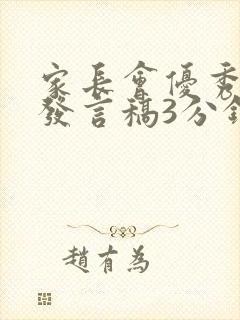 家長會優秀
發言稿3分鐘
趙有為